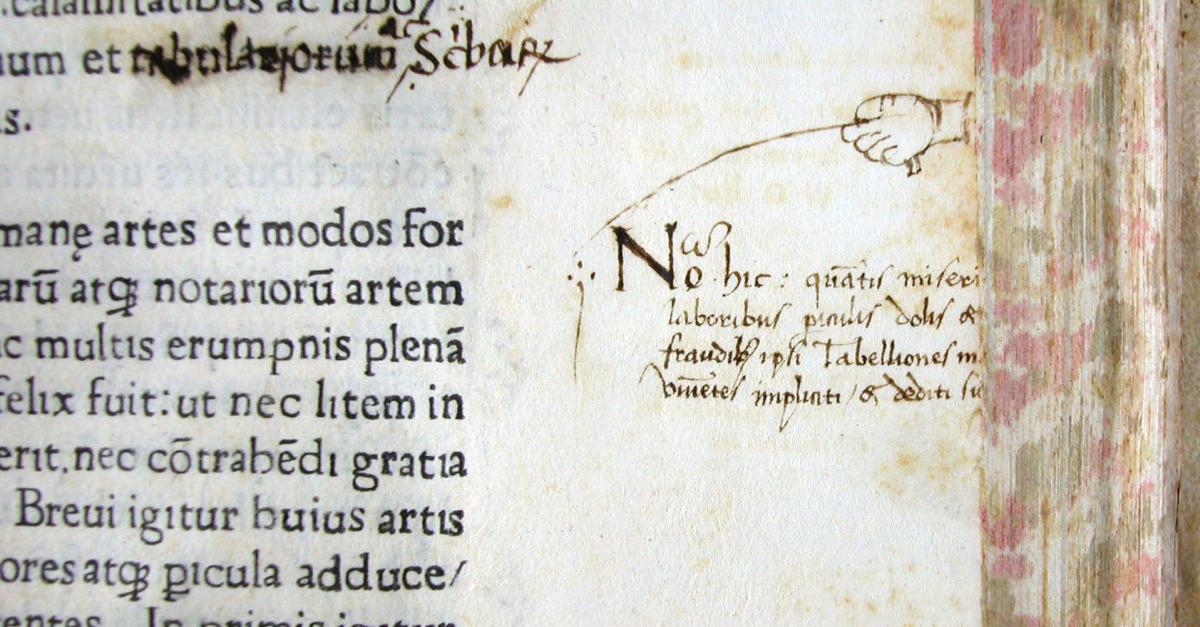 calamitatibus ac labo/
num et tabulariorum ac Scbarz
as.
manę artes et modos for
arū atqȝ notariorū artem
ac multis erumpnis plenā
felix fuit: ut nec litem in
erit, nec cōtrahēdi gratia
Breui igitur huius artis
ores atqȝ ꝑicula adduce/
In primis igitur
No hic: quātis miseri
laboribus piculis dolis &
fraudibȝ ipsi Tabelliones
viuētes impliciti / & dediti su